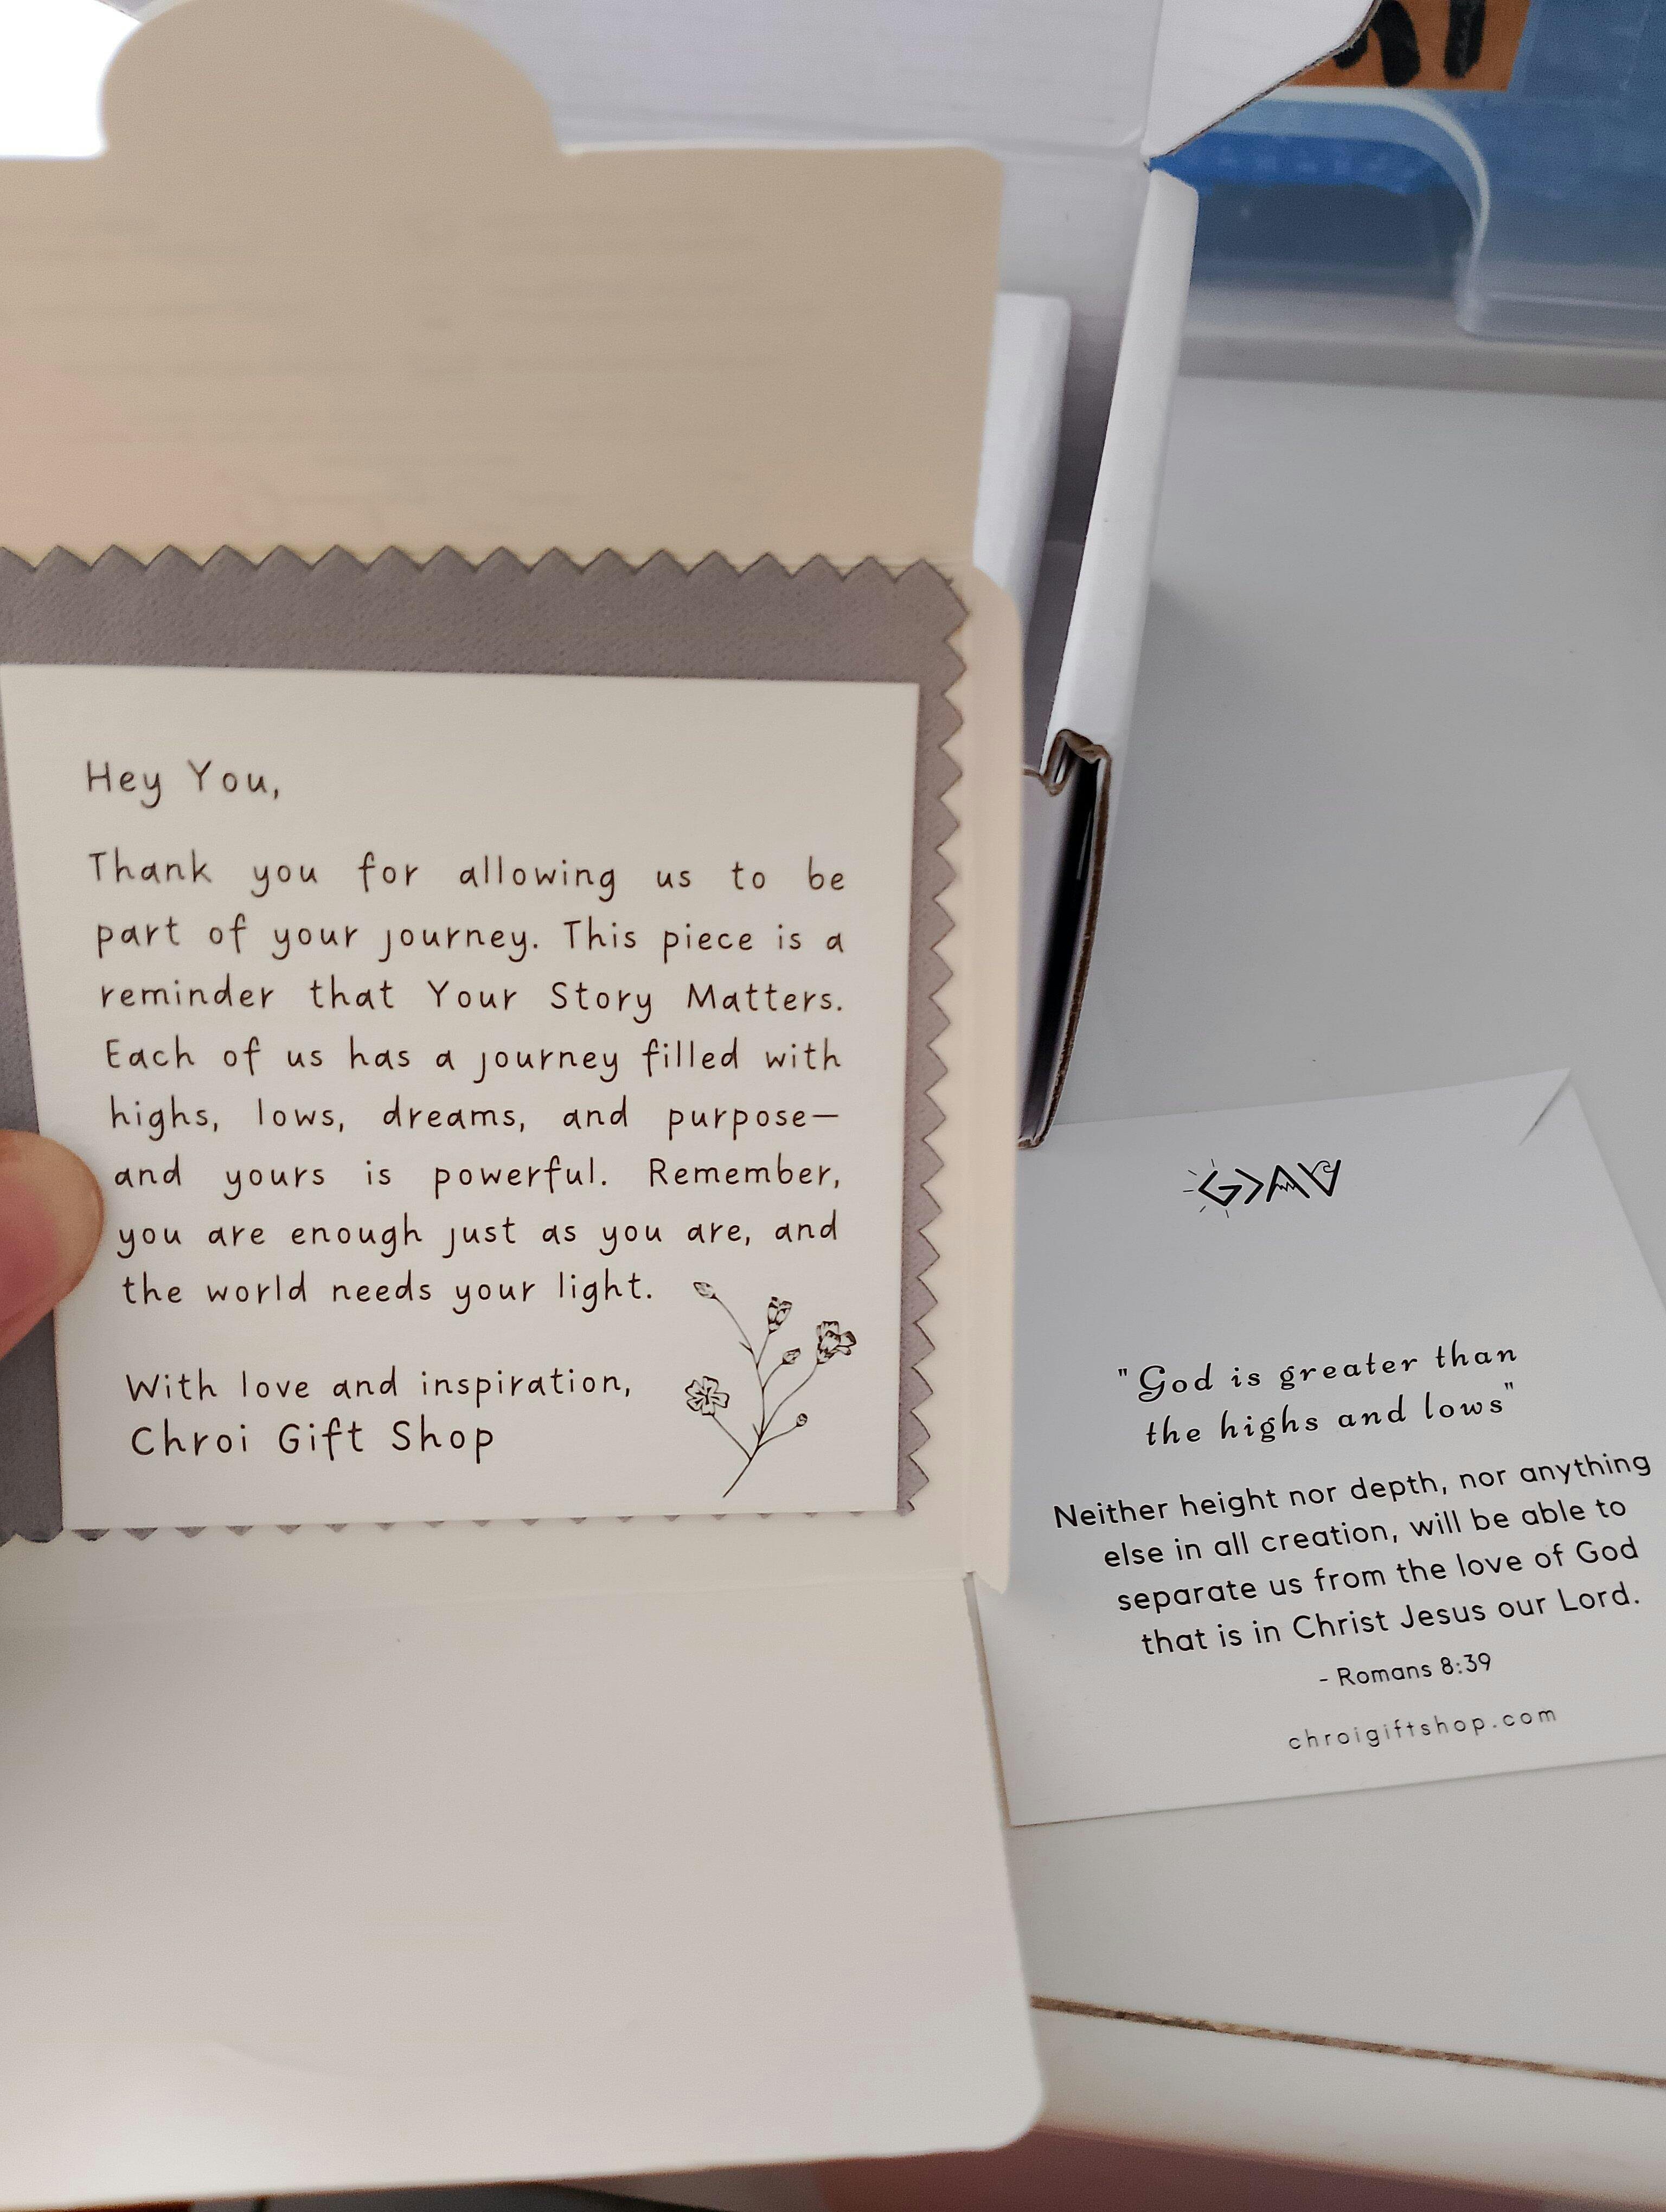 Hey You,
Thank you for allowing us to be
part of your journey. This piece is a
reminder that Your Story Matters.
Each of us has a journey filled with
highs, lows, dreams, and purpose—
and yours is powerful. Remember,
you are enough just as you are, and
the world needs your light.
With love and inspiration,
Chroi Gift Shop
G>ΛV
"God is greater than
the highs and lows"
Neither height nor depth, nor anything
else in all creation, will be able to
separate us from the love of God
that is in Christ Jesus our Lord.
- Romans 8:39
chroigiftshop.com